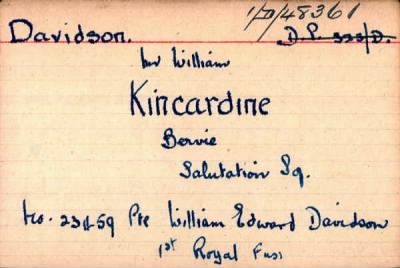 1/D/48361
Davidson. D.P. 333/D.
Mr William
Kincardine
Bervie
Salutation Sq.
No. 23459 Pte William Edward Davidson
1st Royal Fuss